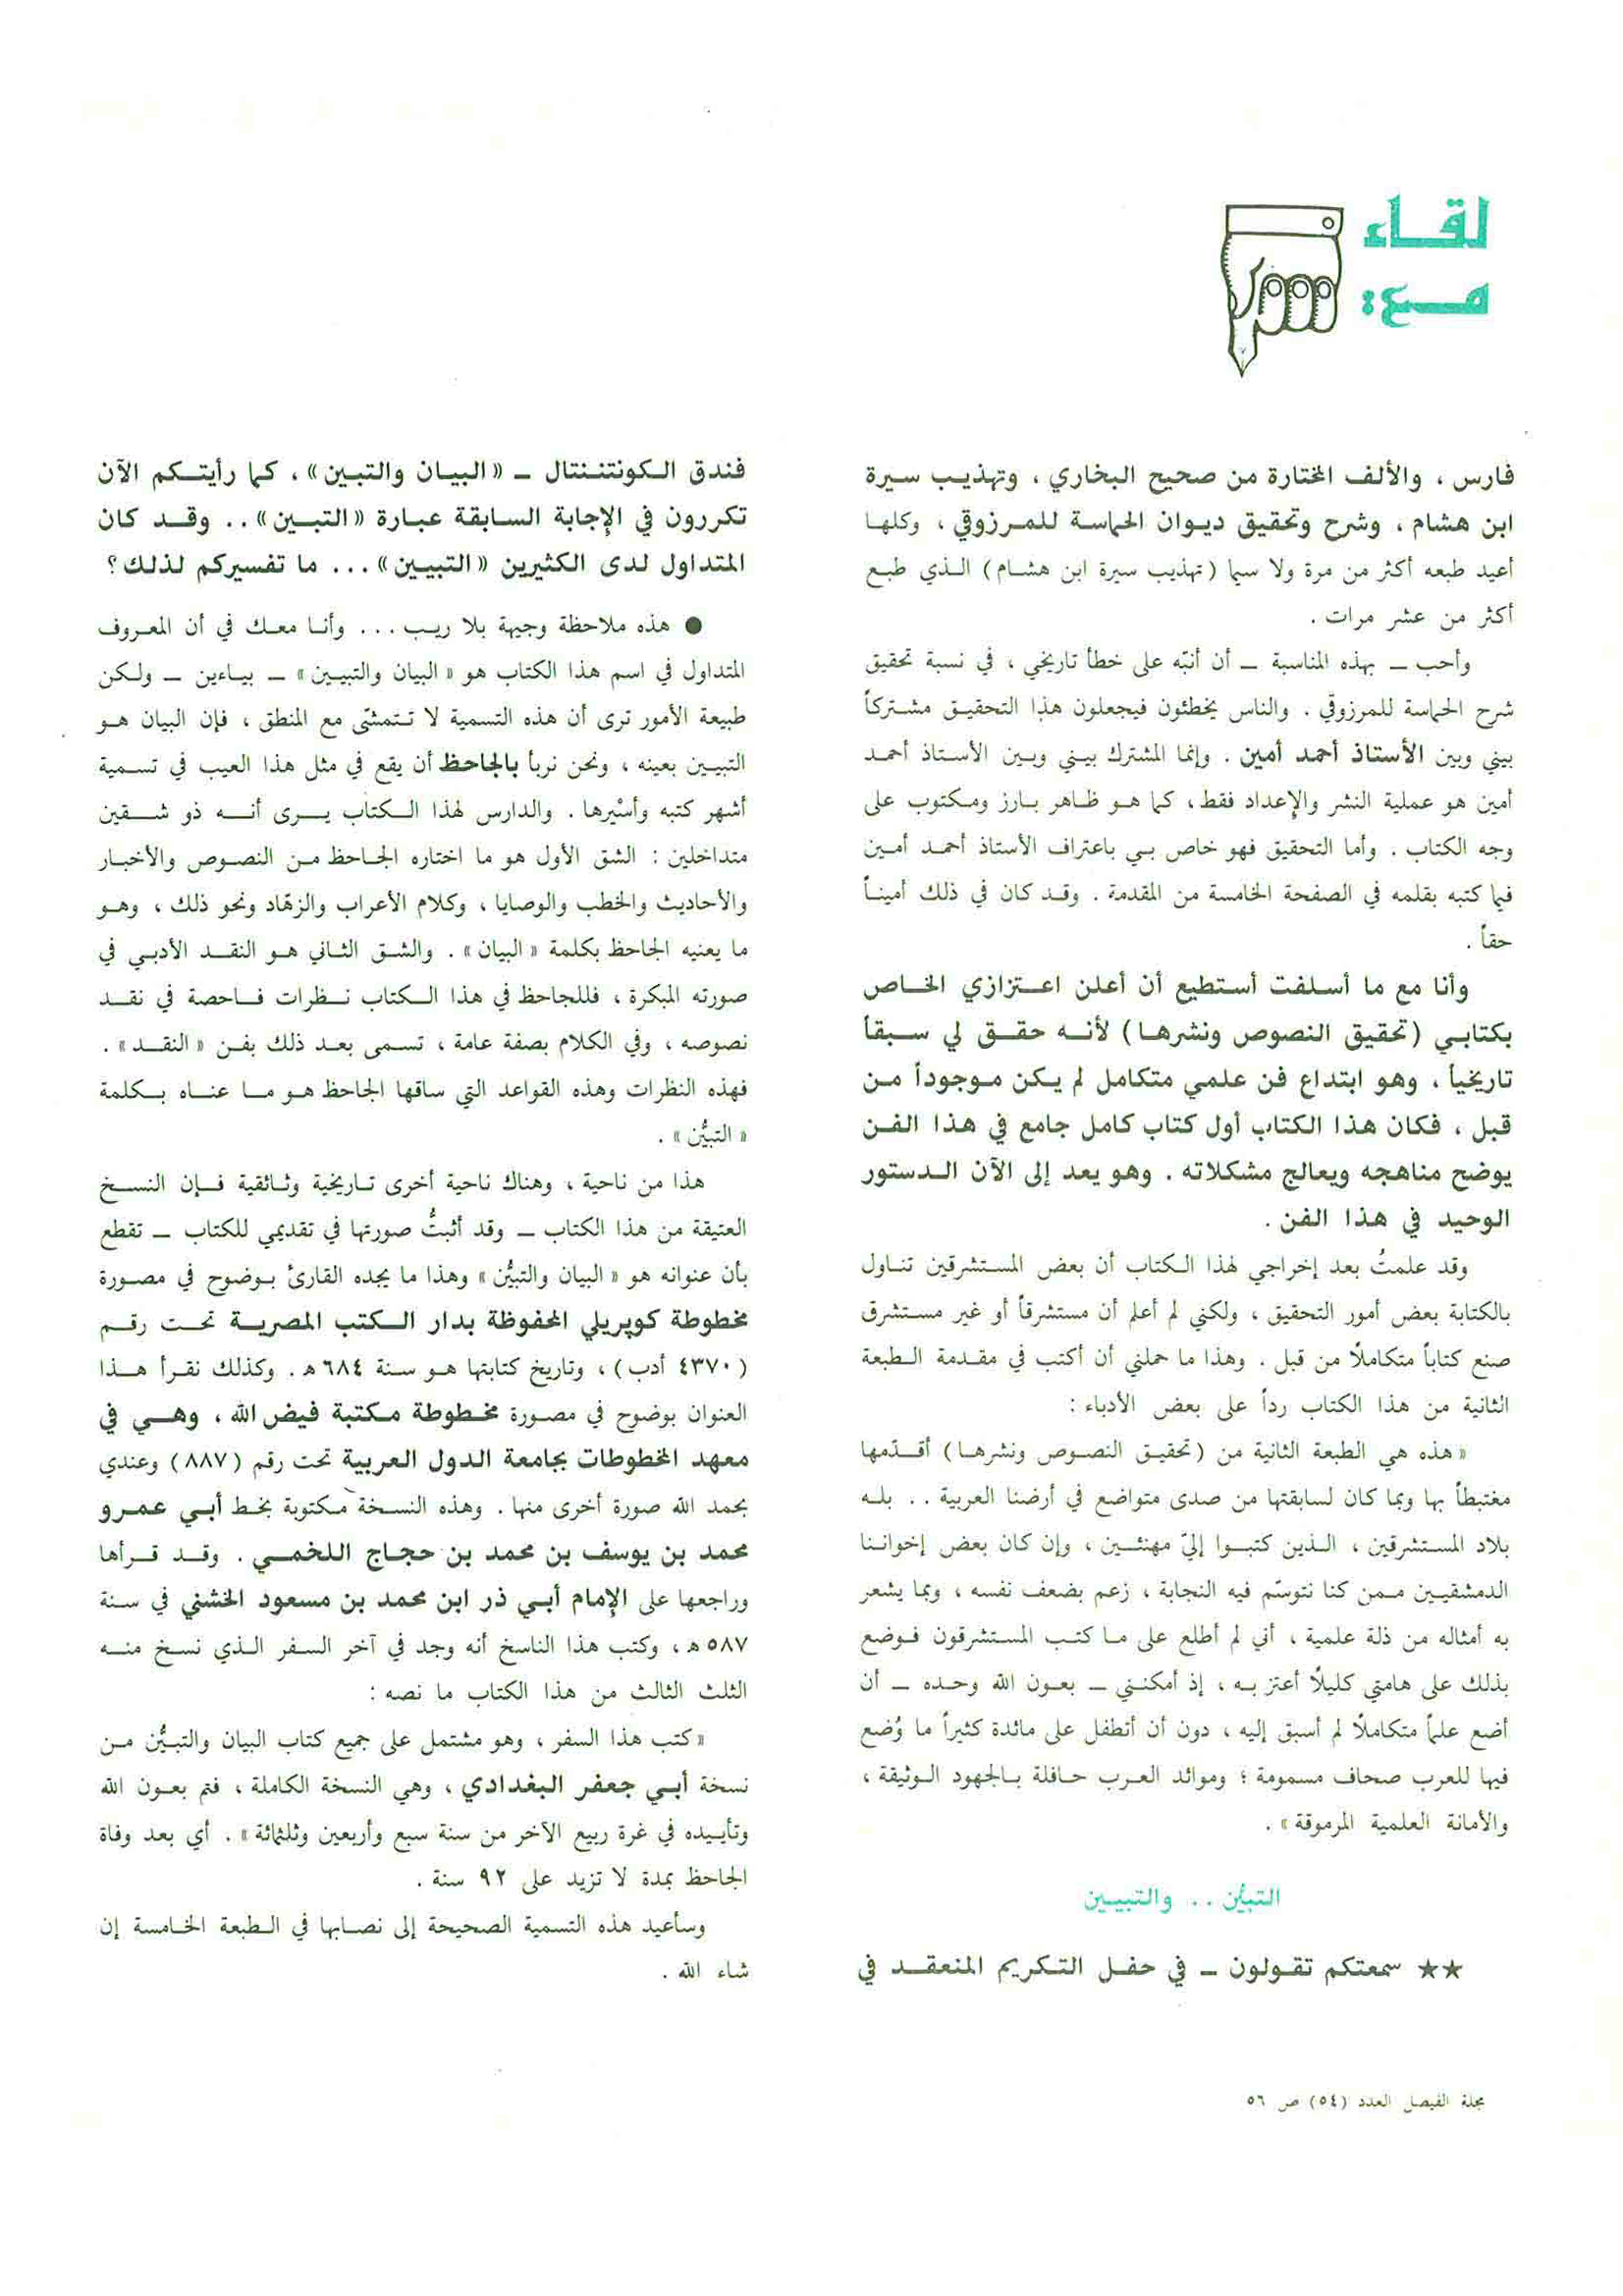 لقاء
مع:
فارس ، والألف المختارة من صحيح البخاري ، وتهذيب سيرة
ابن هشام ، وشرح وتحقيق ديوان الحماسة للمرزوقي ، وكلها
أعيد طبعه أكثر من مرة ولا سيما (تهذيب سيرة ابن هشام) الذي طبع
أكثر من عشر مرات .
وأحب ــ بهذه المناسبة ــ أن أنبّه على خطأ تاريخي ، في نسبة تحقيق
شرح الحماسة للمرزوقي . والناس يخطئون فيجعلون هذا التحقيق مشتركاً
بيني وبين الأستاذ أحمد أمين . وإنما المشترك بيني وبين الأستاذ أحمد
أمين هو عملية النشر والإعداد فقط، كما هو ظاهر بارز ومكتوب على
وجه الكتاب . وأما التحقيق فهو خاص بي باعتراف الأستاذ أحمد أمين
فيما كتبه بقلمه في الصفحة الخامسة من المقدمة . وقد كان في ذلك أميناً
حقاً .
وأنا مع ما أسلفت أستطيع أن أعلن اعتزازي الخاص
بكتابي (تحقيق النصوص ونشرها) لأنه حقق لي سبقاً
تاريخياً ، وهو ابتداع فن علمي متكامل لم يكن موجوداً من
قبل ، فكان هذا الكتاب أول كتاب كامل جامع في هذا الفن
يوضح مناهجه ويعالج مشكلاته . وهو يعد إلى الآن الدستور
الوحيد في هذا الفن .
وقد علمتُ بعد إخراجي لهذا الكتاب أن بعض المستشرقين تناول
بالكتابة بعض أمور التحقيق ، ولكني لم أعلم أن مستشرقاً أو غير مستشرق
صنع كتاباً متكاملًا من قبل . وهذا ما حملني أن أكتب في مقدمة الطبعة
الثانية من هذا الكتاب رداً على بعض الأدباء :
«هذه هي الطبعة الثانية من (تحقيق النصوص ونشرها) أقدّمها
مغتبطاً بها وبما كان لسابقتها من صدى متواضع في أرضنا العربية .. بله
بلاد المستشرقين ، الذين كتبوا إليّ مهنئين ، وإن كان بعض إخواننا
الدمشقيين ممن كنا نتوسّم فيه النجابة ، زعم بضعف نفسه ، وبما يشعر
به أمثاله من ذلة علمية ، أني لم أطلع على ما كتب المستشرقون فوضع
بذلك على هامتي كليلًا أعتز به ، إذ أمكنني ــ بعون الله وحده ــ أن
أضع علماً متكاملًا لم أسبق إليه ، دون أن أتطفل على مائدة كثيراً ما وُضع
فيها للعرب صحاف مسمومة ؛ وموائد العرب حافلة بالجهود الوثيقة ،
والأمانة العلمية المرموقة» .
التبيُّن .. والتبيين
★★ سمعتكم تقولون ــ في حفل التكريم المنعقد في
فندق الكونتننتال ــ «البيان والتبين» ، كما رأيتكم الآن
تكررون في الإجابة السابقة عبارة «التبين» .. وقد كان
المتداول لدى الكثيرين «التبيين» ... ما تفسيركم لذلك ؟
● هذه ملاحظة وجيهة بلا ريب ... وأنا معك في أن المعروف
المتداول في اسم هذا الكتاب هو «البيان والتبيين» ــ بياءين ــ ولكن
طبيعة الأمور ترى أن هذه التسمية لا تتمشّى مع المنطق ، فإن البيان هو
التبيين بعينه ، ونحن نربأ بالجاحظ أن يقع في مثل هذا العيب في تسمية
أشهر كتبه وأسْيرها . والدارس لهذا الكتاب يرى أنه ذو شقين
متداخلين : الشق الأول هو ما اختاره الجاحظ من النصوص والأخبار
والأحاديث والخطب والوصايا ، وكلام الأعراب والزهّاد ونحو ذلك ، وهو
ما يعنيه الجاحظ بكلمة «البيان» . والشق الثاني هو النقد الأدبي في
صورته المبكرة ، فللجاحظ في هذا الكتاب نظرات فاحصة في نقد
نصوصه ، وفي الكلام بصفة عامة ، تسمى بعد ذلك بفن «النقد» .
فهذه النظرات وهذه القواعد التي ساقها الجاحظ هو ما عناه بكلمة
«التبيُّن» .
هذا من ناحية ، وهناك ناحية أخرى تاريخية وثائقية فإن النسخ
العتيقة من هذا الكتاب ــ وقد أثبتُّ صورتها في تقديمي للكتاب ــ تقطع
بأن عنوانه هو «البيان والتبيُّن» وهذا ما يجده القارئ بوضوح في مصورة
مخطوطة كوپريلي المحفوظة بدار الكتب المصرية تحت رقم
(٤٣٧٠ أدب) ، وتاريخ كتابتها هو سنة ٦٨٤ هـ . وكذلك نقرأ هذا
العنوان بوضوح في مصورة مخطوطة مكتبة فيض الله ، وهي في
معهد المخطوطات بجامعة الدول العربية تحت رقم (٨٨٧) وعندي
بحمد الله صورة أخرى منها . وهذه النسخة مكتوبة بخط أبي عمرو
محمد بن يوسف بن محمد بن حجاج اللخمي . وقد قرأها
وراجعها على الإمام أبي ذر ابن محمد بن مسعود الخشني في سنة
٥٨٧ هـ ، وكتب هذا الناسخ أنه وجد في آخر السفر الذي نسخ منه
الثلث الثالث من هذا الكتاب ما نصه :
«كتب هذا السفر ، وهو مشتمل على جميع كتاب البيان والتبيُّن من
نسخة أبي جعفر البغدادي ، وهي النسخة الكاملة ، فتم بعون الله
وتأييده في غرة ربيع الآخر من سنة سبع وأربعين وثلثمائة» . أي بعد وفاة
الجاحظ بمدة لا تزيد على ٩٢ سنة .
وسأعيد هذه التسمية الصحيحة إلى نصابها في الطبعة الخامسة إن
شاء الله .
مجلة الفيصل العدد (٥٤) ص ٥٦